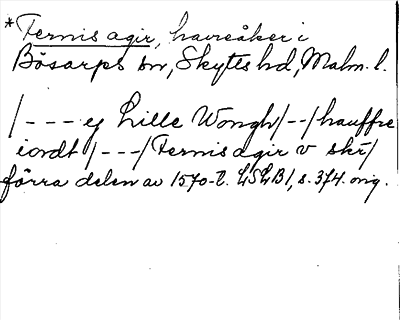 *Fernis agir, havreåker i
Bösarps sn, Skytts hd, Malm. l.
/--- ej Lille Wongh/--/hauffre
iordt/---/Fernis agir v skr/
förra delen av 1570-t. LSLB I, s. 374. orig.